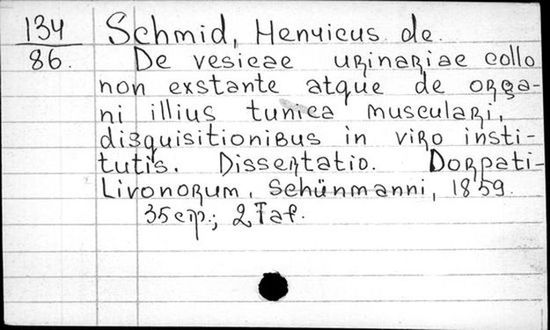 134 Schmid, Henricus de.
86. De vesicae urinariae collo
non exstante atque de orga-
ni illius tunica musculari,
disquisitionibus in viro insti-
tutis. Dissertatio. Dorpati-
Livonorum, Schünmanni, 1859.
35 стр.; 2 Taf.